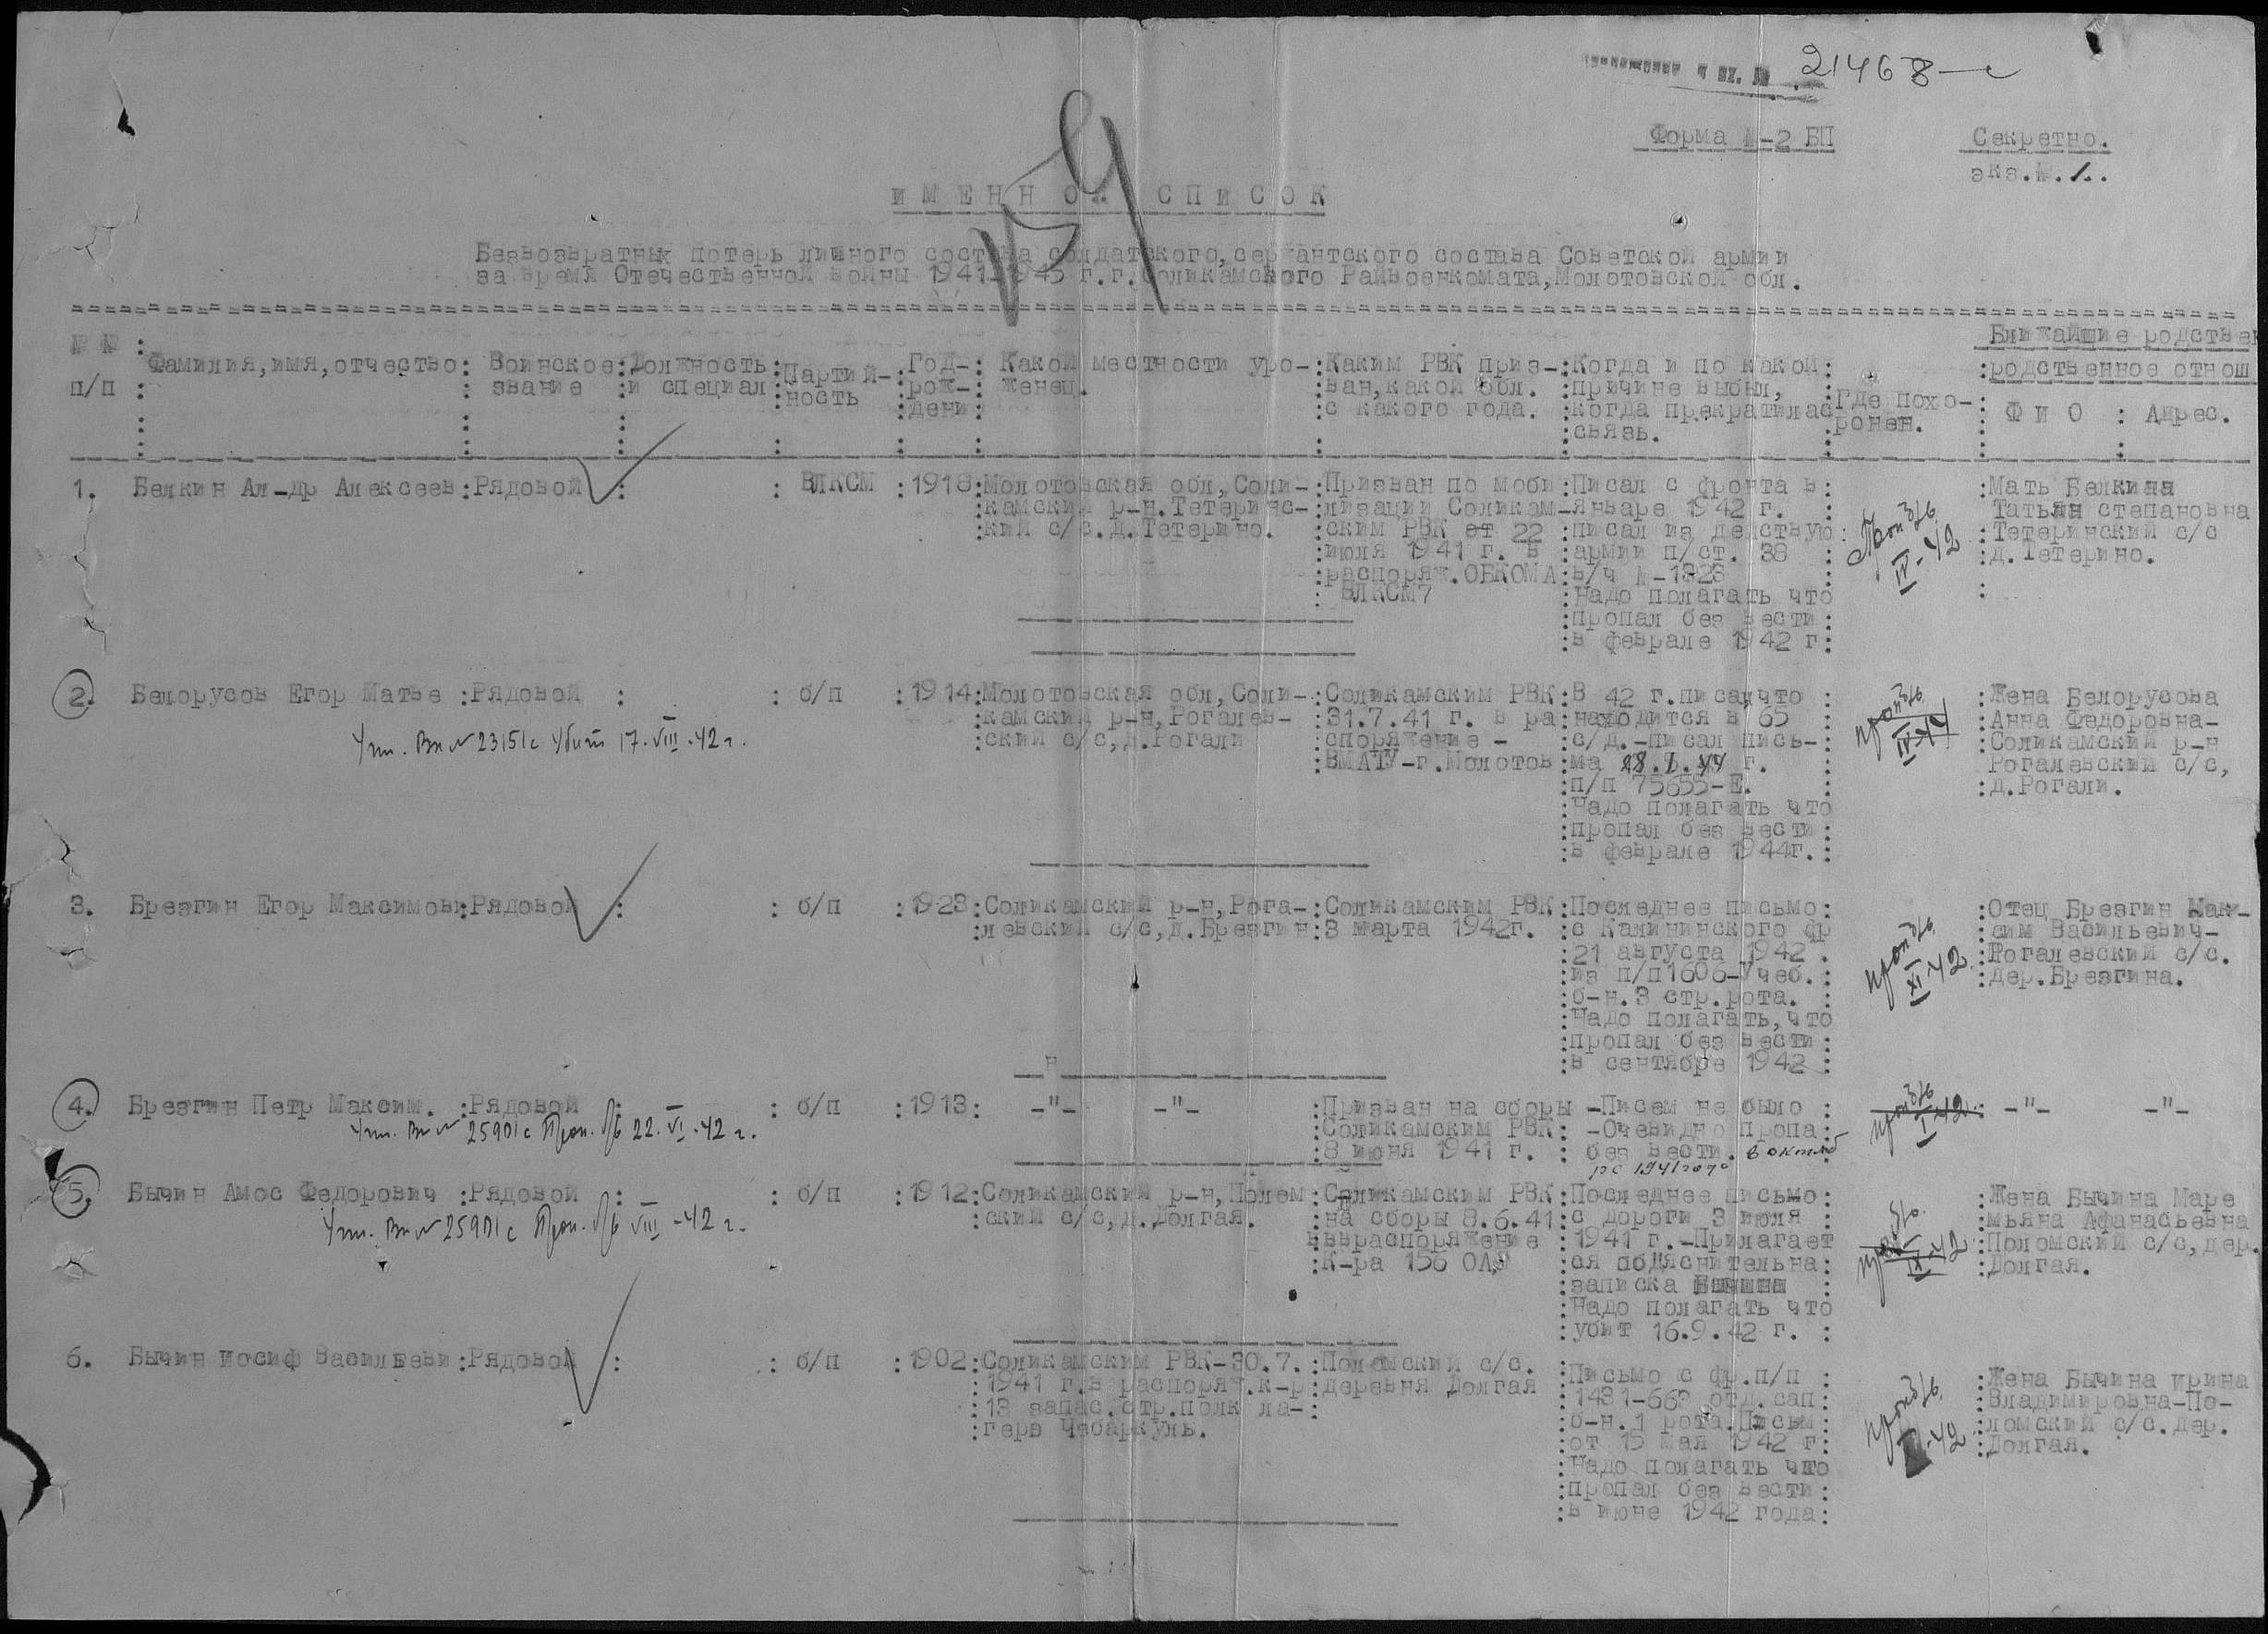 вх. № 21468-с
Форма №-2 БП Секретно.
экз.№.1.
ИМЕННОЙ СПИСОК
Безвозвратных потерь личного состава солдатского, сержантского состава Советской армии
за время Отечественной войны 1941-1945 г.г. Соликамского Райвоенкомата, Молотовской обл.
№№ п/п
Фамилия, имя, отчество
Воинское звание
Должность и специал
Партий-
ность
Год-
рож-
дени
Какой местности уро-
женец.
Каким РВК приз-
ван, какой обл.
с какого года.
Когда и по какой
причине выбыл,
когда прекратилас
связь.
Где похо-
ронен.
Ближайшие родствен
родственное отнош
Ф И О : Адрес.
1. Белкин Ал-др Алексеев:Рядовой : : ВЛКСМ :1918:
Молотовская обл, Соли-
камский р-н. Тетеринс-
кий с/с. д. Тетерино.
Призван по моби
лизации Соликам-
ским РВК от 22
июля 1941 г. в
распоряж. ОБКОМА
ВЛКСМ7
Писал с фронта в
Январе 1942 г.
писал из действую
армии п/ст. 38
в/ч №-1323
Надо полагать что
пропал без вести
в феврале 1942 г
Проп б/в
IV-42
Мать Белкина
Татьян степановна
Тетеринский с/с
д. Тетерино.
2. Белорусов Егор Матве :Рядовой : : б/п :1914:
Учт. Вх № 23151с Убит 17.VIII.42 г.
Молотовская обл, Соли-
камский р-н, Рогалев-
ский с/с, д. Рогали
Соликамским РВК
31.7.41 г. в ра
споряжение -
ВМАТУ-г. Молотов
В 42 г. писал, что
находится в 65
с/д.-писал пись-
ма 28.1.44 г.
п/п 75655-Е.
Надо полагать что
пропал без вести
в феврале 1944г.
проп б/в
Жена Белорусова
Анна Федоровна-
Соликамский р-н
Рогалевский с/с,
д. Рогали.
3. Брезгин Егор Максимови:Рядовой : : б/п :1923:
Соликамский р-н, Рога-
левский с/с, д. Брезгин
Соликамским РВК
3 марта 1942г.
Последнее письмо
с Калининского фр
21 августа 1942 .
из п/п1606-Учеб.
б-н. 3 стр. рота.
Надо полагать, что
пропал без вести
в сентябре 1942
проп б/в
XI-42
Отец Брезгин Мак-
сим Васильевич-
Рогалевский с/с.
дер. Брезгина.
4. Брезгин Петр Максим. :Рядовой : : б/п :1913: -"- -"-
Учт. Вх № 25901с Проп. б/в 22.VI.42 г.
Призван на сборы
Соликамским РВК
8 июня 1941 г.
-Писем не было
-Очевидно пропа
без вести. в октяб
ре 1941 года
проп б/в
I-42
-"- -"-
5. Бычин Амос Федорович :Рядовой : : б/п :1912:
Учт. Вх № 25901с Проп. б/в VIII-42 г.
Соликамский р-н, Полом
ский с/с, д. Долгая.
Соликамским РВК
на сборы 8.6.41
вв распоряжение
К-ра 156 ОЛ
Последнее письмо
с дороги 3 июля
1941 г.-Прилагает
ся объяснительна
записка Бычина
Надо полагать что
убит 16.9.42 г.
б/в
IX-42
Жена Бычина Маре
мьяна Афанасьевна
Поломский с/с, дер.
Долгая.
6. Бычин Иосиф Васильеви :Рядовой : : б/п :1902:
Соликамским РВК-30.7.
1941 г. в распоряж. к-р
13 запас. стр. полк ла-
геря Чебаркуль.
Поломский с/с.
деревня Долгая
Письмо с фр. п/п
1431-663 отд. сап
б-н. 1 рота. Письм
от 15 мая 1942 г
Надо полагать что
пропал без вести
в июне 1942 года
проп б/в
-42
Жена Бычина Ирина
Владимировна-По-
ломский с/с. дер.
Долгая.